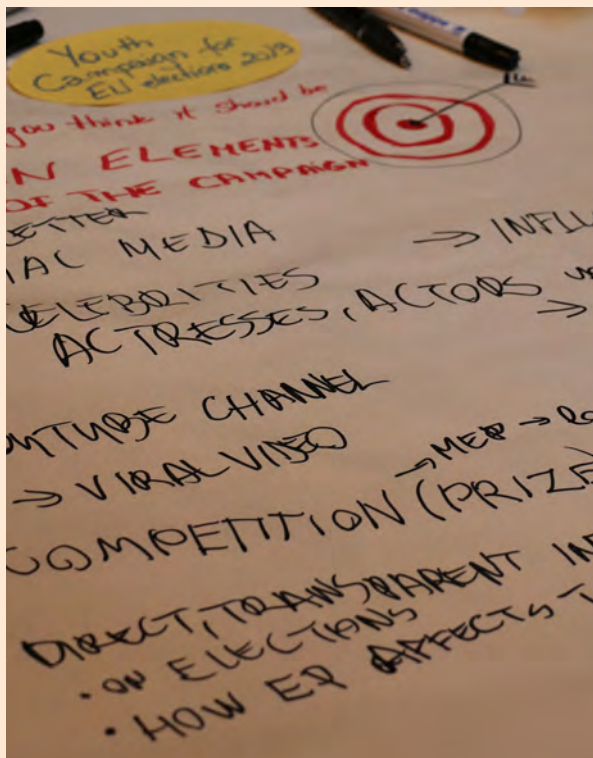 Youth
Campaign for
EU elections 2019
you think it should be
ELEMENTS
OF THE CAMPAIGN
MEDIA
CELEBRITIES
ACTRESSES, ACTORS
CHANNEL
→ VIRAL VIDEO
→ MEP →
COMPETITION (PRIZE)
DIRECT, TRANSPARENT
• ON ELECTIONS
• HOW EP AFFECTS